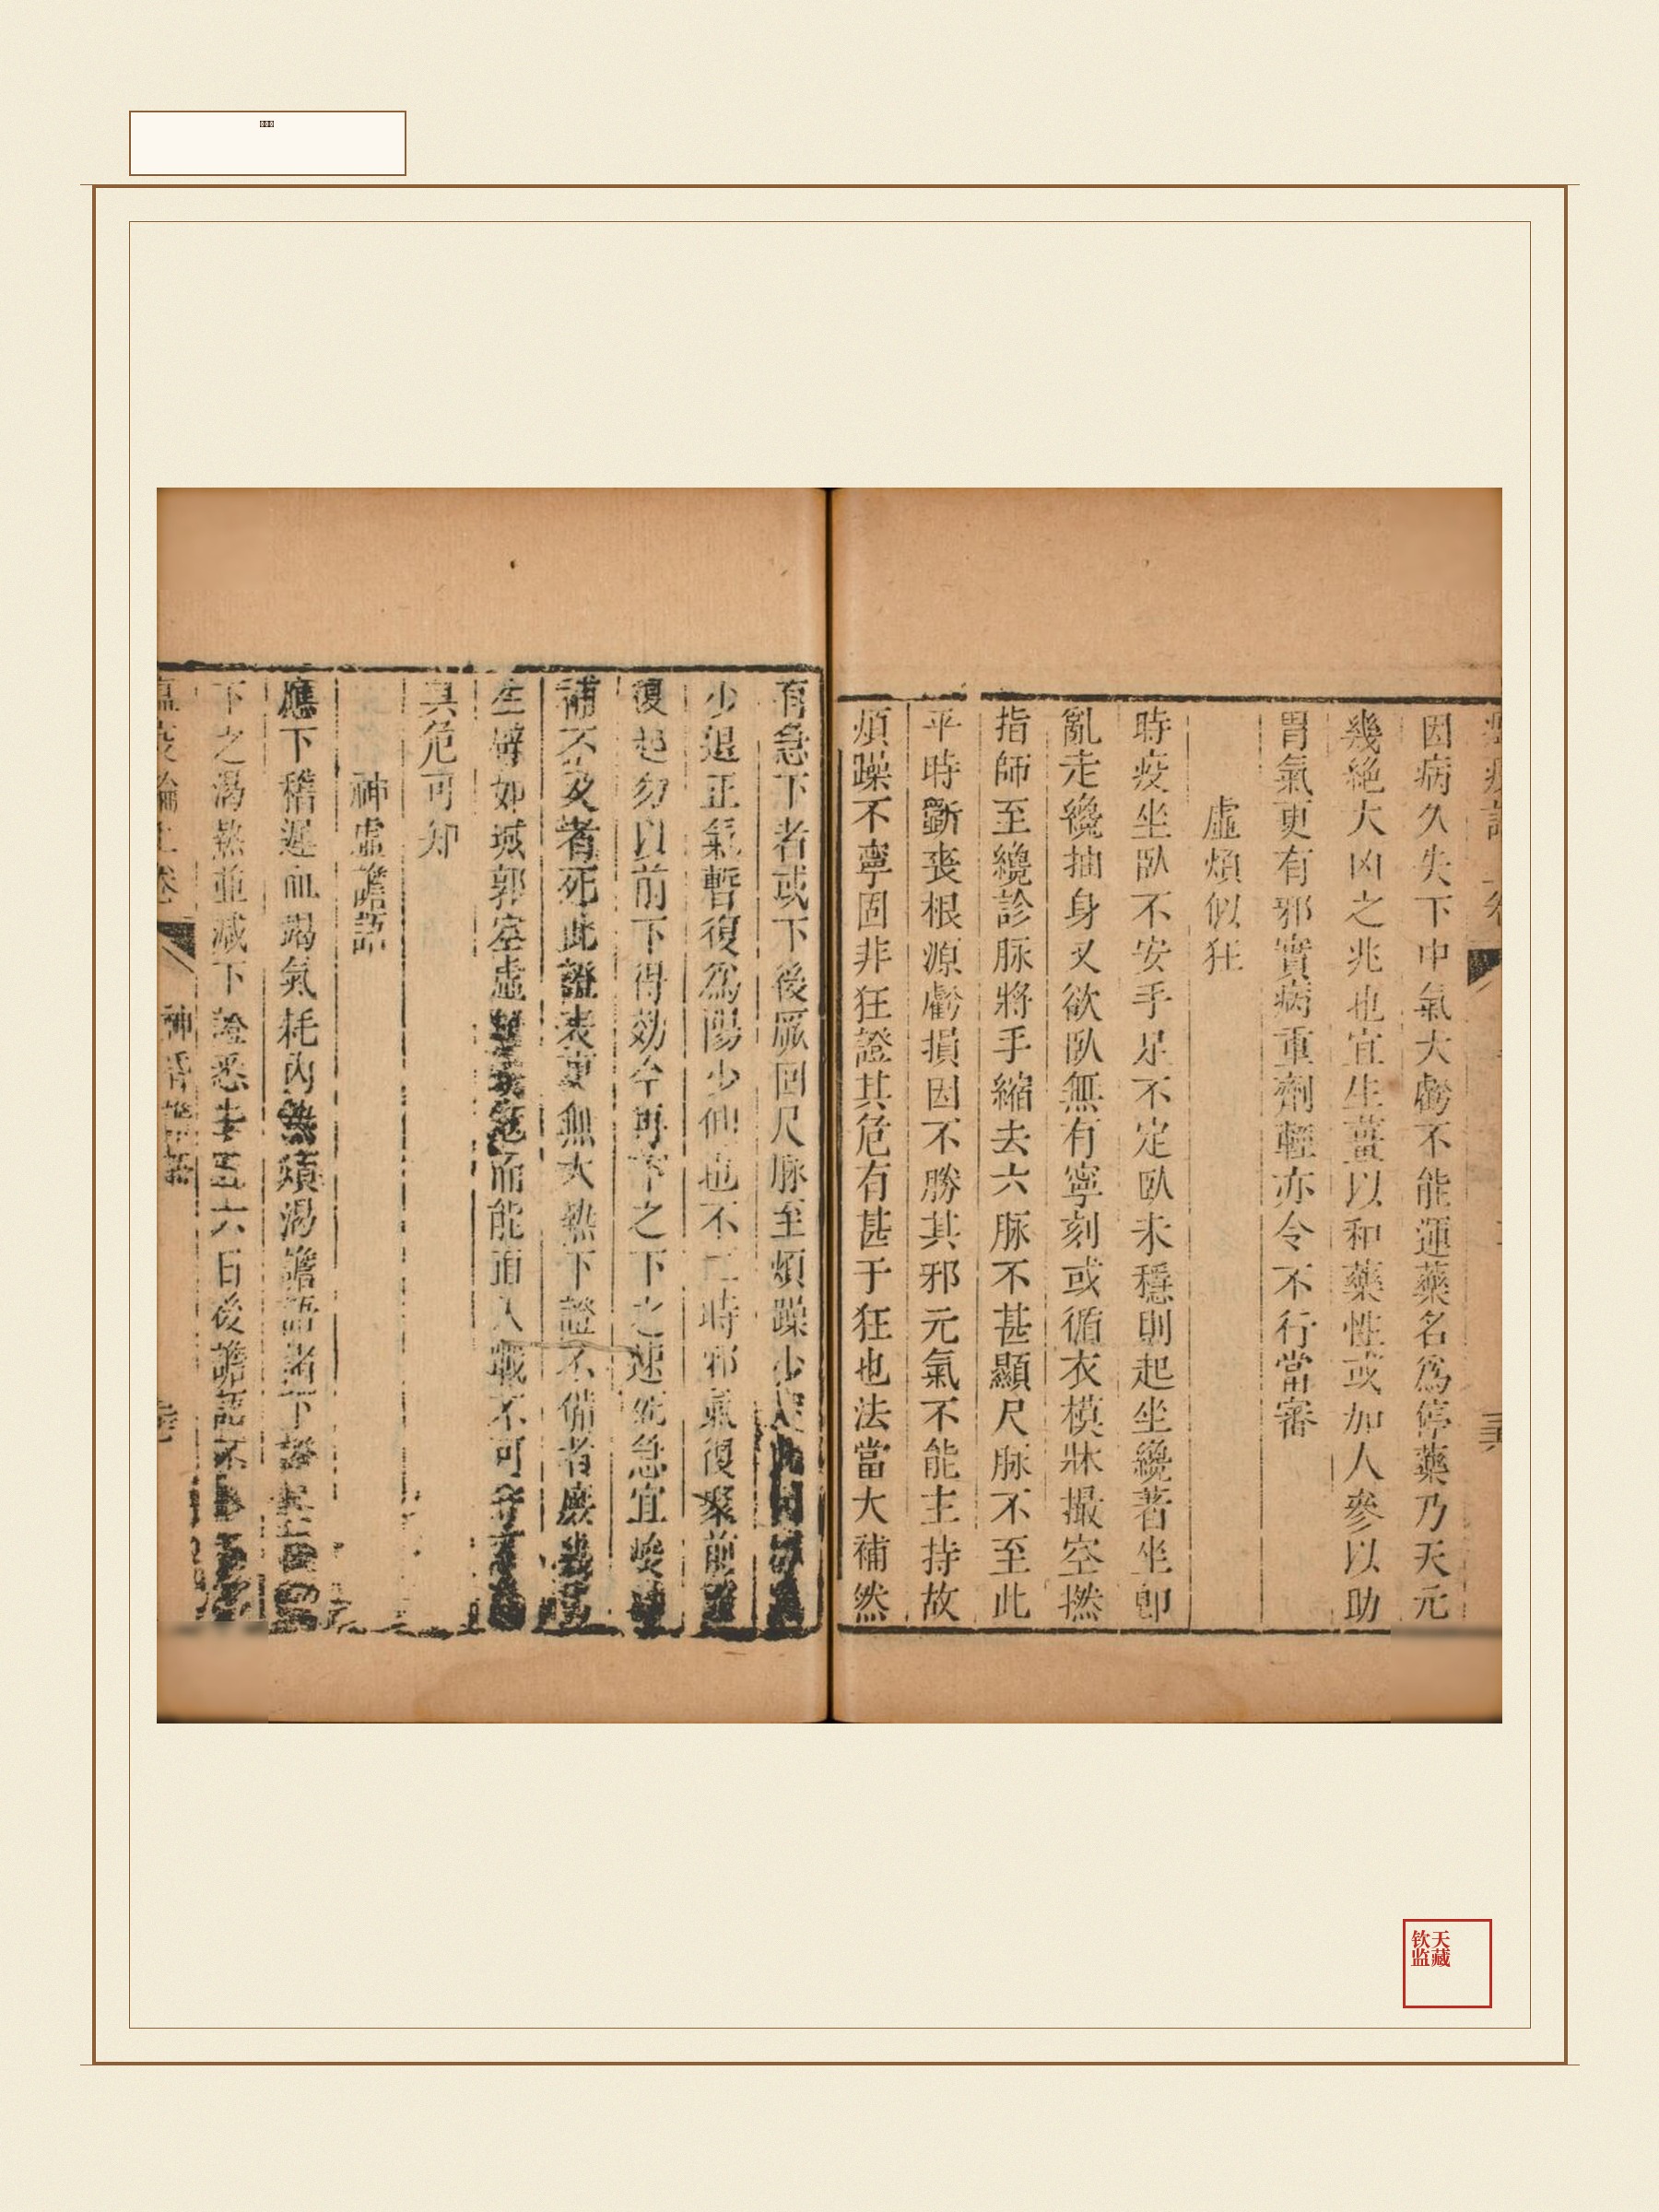 因病久失下中氣大虧不能運藥名為停藥乃天元
幾絕大凶之兆也宜生薑以和藥性或加人參以助
胃氣更有邪實病重劑輕亦令不行當審
虛煩似狂
時疫坐臥不安手足不定臥未穩則起坐纔著坐即
亂走纔抽身又欲臥無有寧刻或循衣模牀撮空撚
指師至纔診脉將手縮去六脉不甚顯尺脉不至此
平時斵喪根源虧損因不勝其邪元氣不能主持故
煩躁不寧固非狂證其危有甚于狂也法當大補然
有急下者或下後厥回尺脉至煩躁少
少退正氣暫復為陽少伸也不二時邪氣復聚前
復起勿以前下得効今再下之下之速死急宜峻
補不及者死此證表裏無大熱下證不備者庶幾
生譬如城郭空虛 而能 入戰不可
其危可知
神虛譫語
應下稽遲血竭氣耗內熱煩渴譫語者下證
下之渴熱並減下證悉去五六日後譫語不
溫疫論上卷
神虛譫語
钦天
监藏